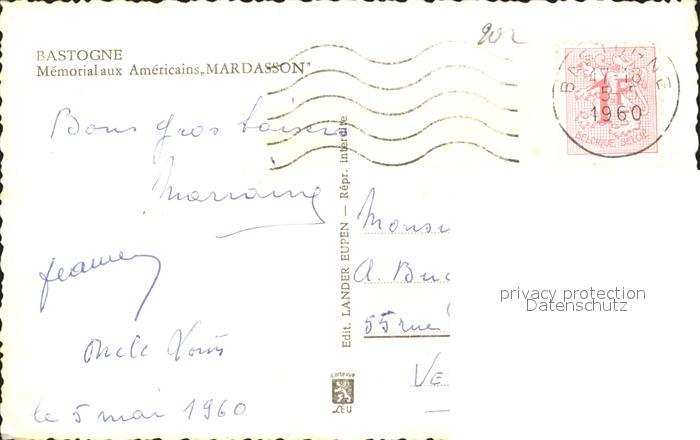 BASTOGNE
Mémorial aux Américains „MARDASSON"
902
BASTOGNE
17-18
5-5
1960
1F
BELGIQUE-BELGIE
Bons gros baisers
Marraine
Jeanne
Oncle Louis
le 5 mai 1960
Edit. LANDER EUPEN — Répr. interdite
Monsi
A. Buc
55 rue
VE
privacy protection
Datenschutz
LEU